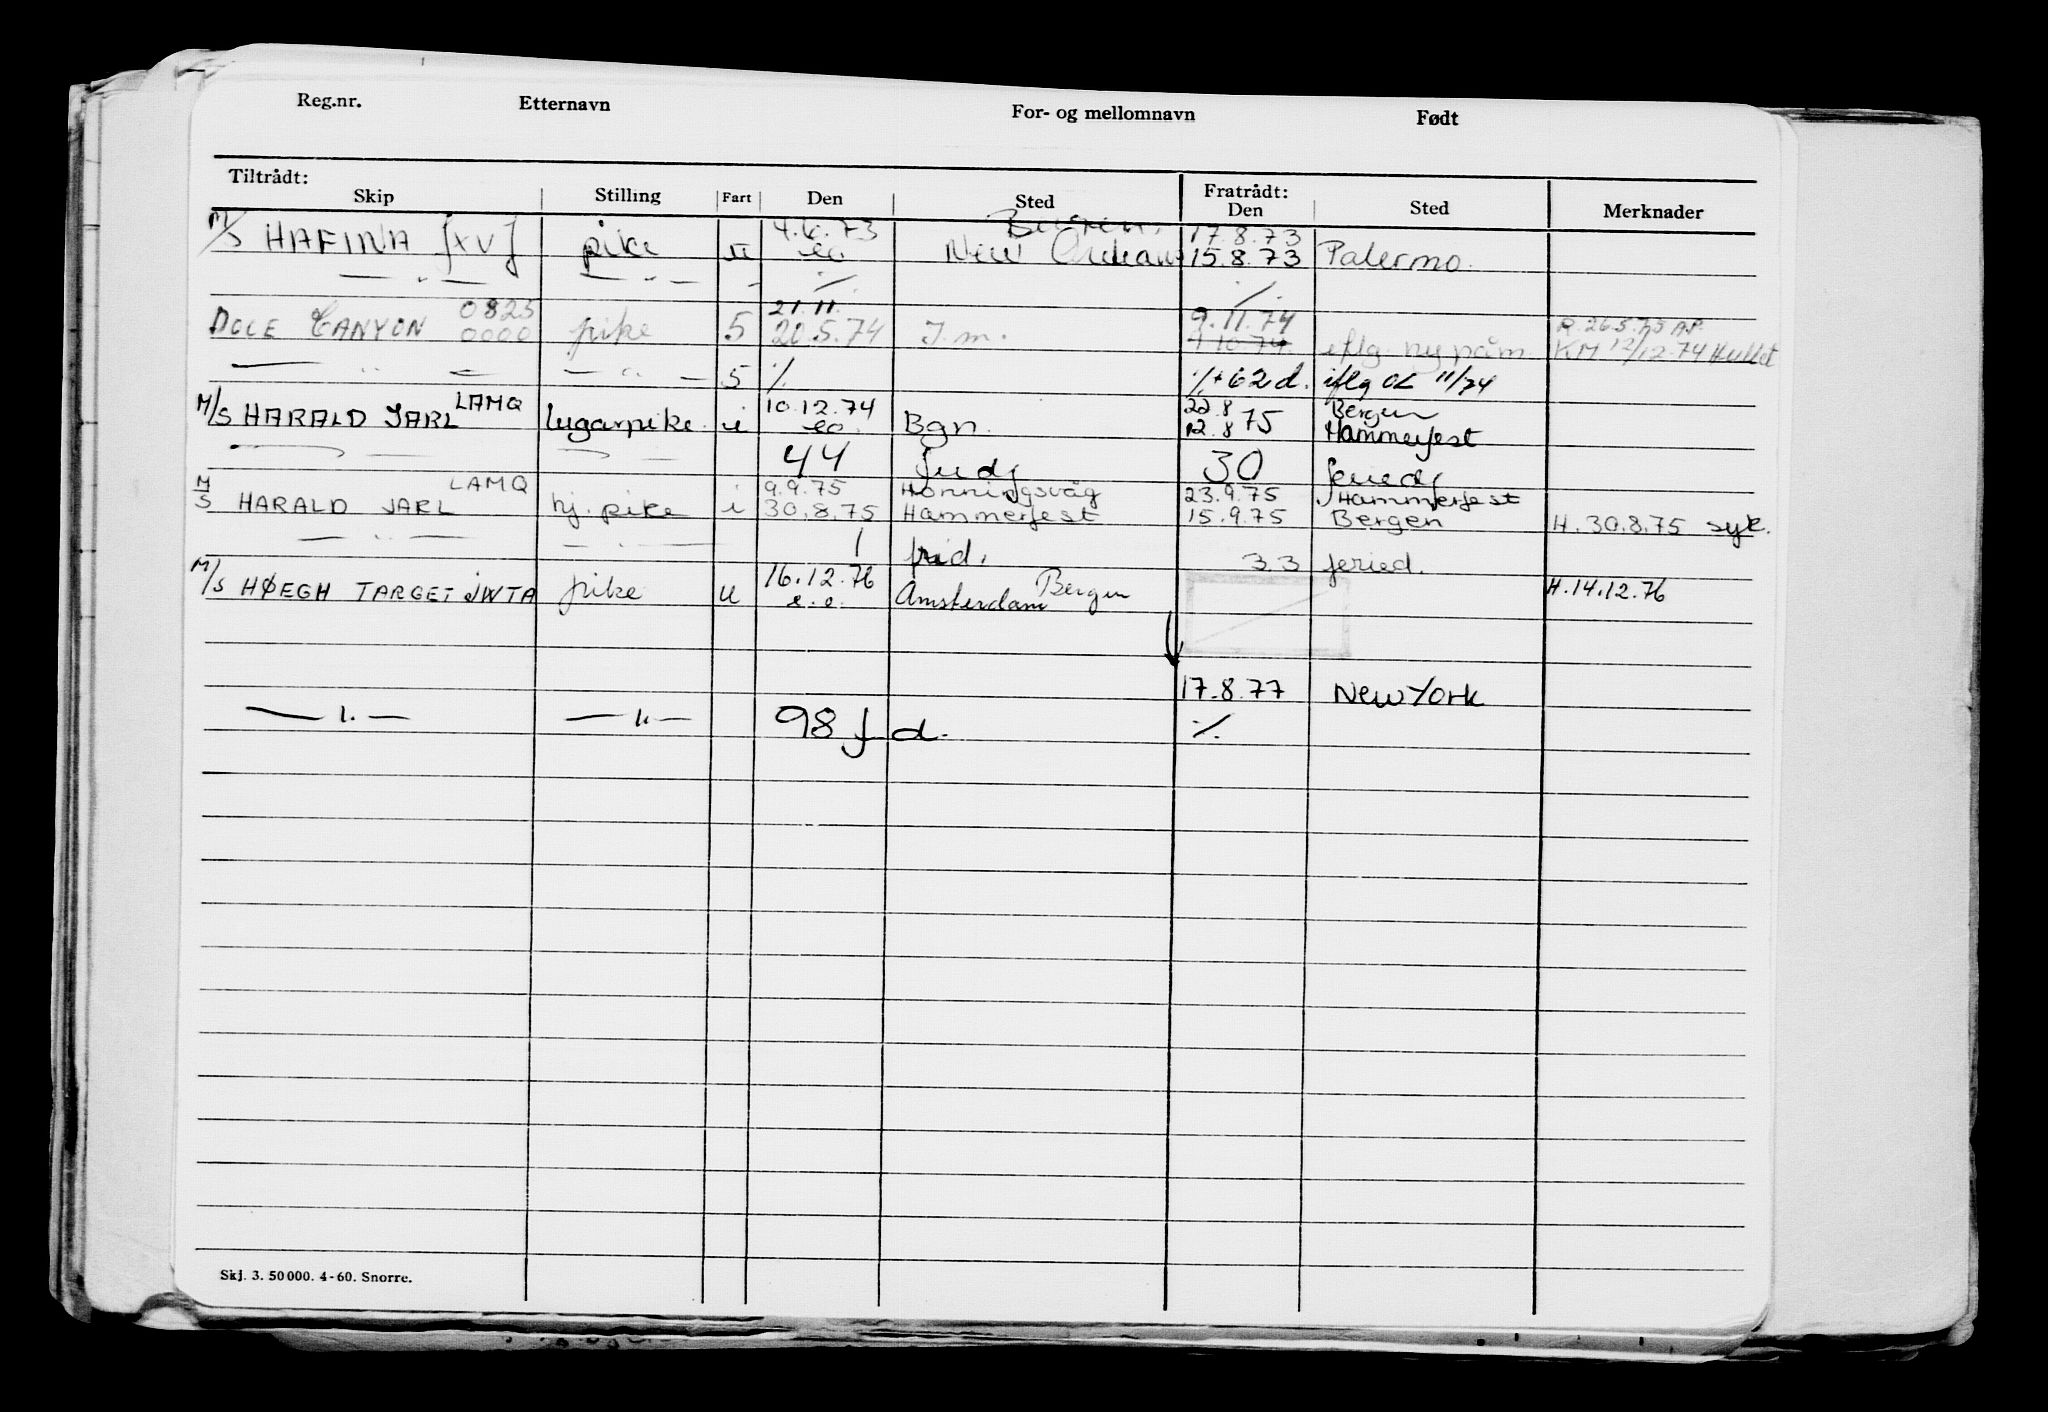 Reg.nr. Etternavn For- og mellomnavn Født
Tiltrådt: Fratrådt:
Skip Stilling Fart Den Sted Den Sted Merknader
4.6.73 Bergen. 17.8.73
M/S HAFINA JXVJ pike u eo New Orleans 15.8.73 Palermo.
— " — — " — " ./. ./.
0825 21.11. 9.11.74 R. 26.5.75 A.P.
DOLE CANYON 0000 pike 5 20.5.74 I.m. 9.10.74. iflg. ny påm. KM 12/12.74 Hullet
— " — — " — 5 ./. ./.+62 d. iflg OL 11/74
LAMQ 10.12.74 22.8 Bergen
M/S HARALD JARL lugarpike. i eo. Bgn. 12.8 75 Hammerfest
— — — — 44 30 feriedg
LAMQ 9.9.75 Honningsvåg 23.9.75 Hammerfest
M/S HARALD JARL hj. pike i 30.8.75 Hammerfest 15.9.75 Bergen H. 30.8.75 syk.
— " — — " — 1 frid. 33 feried.
16.12.76 Bergen
M/S HØEGH TARGET JWTA pike u e.o. Amsterdam H.14.12.76
17.8.77 New York
— " — — " — 98 f d. ./.
Skj. 3. 50 000. 4-60. Snorre.